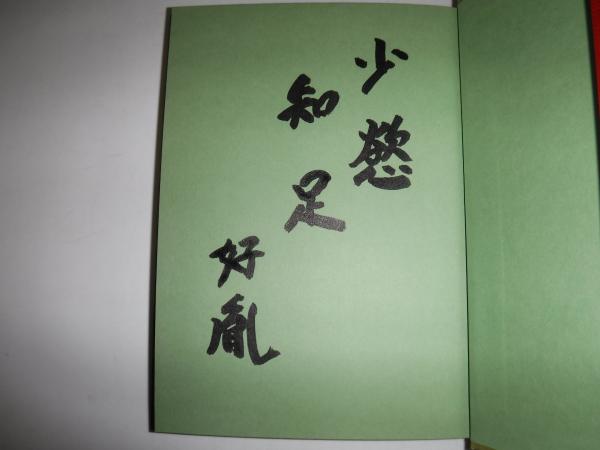 少慾
知足
好胤